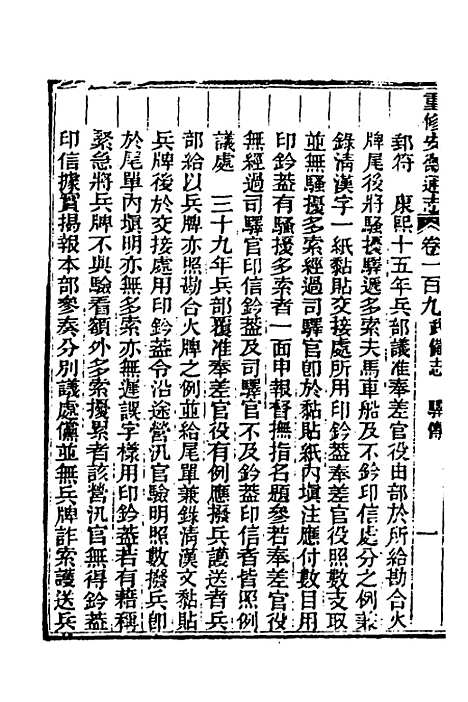 重修安徽通志 卷一百九 武備志 驛傳 一
郵符 康熙十五年兵部議准奉差官役由部於所給勘合火
牌尾後將騷擾驛遞多索夫馬車船及不鈐印信處分之例兼
錄清漢字一紙黏貼交接處所用印鈐蓋奉差官役照數支取
並無騷擾多索經過司驛官卽於黏貼紙內填注應付數目用
印鈐蓋有騷擾多索者一面申報督撫指名題參若奉差官役
無經過司驛官印信鈐蓋及司驛官不及鈐蓋印信者皆照例
議處 三十九年兵部覆准奉差官役有例應撥兵護送者兵
部給以兵牌亦照勘合火牌之例並給尾單兼錄清漢文黏貼
兵牌後於交接處用印鈐蓋令沿途營汛官驗明照數撥兵卽
於尾單內填明亦無多索亦無遲誤字樣用印鈐蓋若有藉稱
緊急將兵牌不與驗看額外多索擾累者該營汛官無得鈐蓋
印信據實揭報本部參奏分別議處儻並無兵牌詐索護送兵